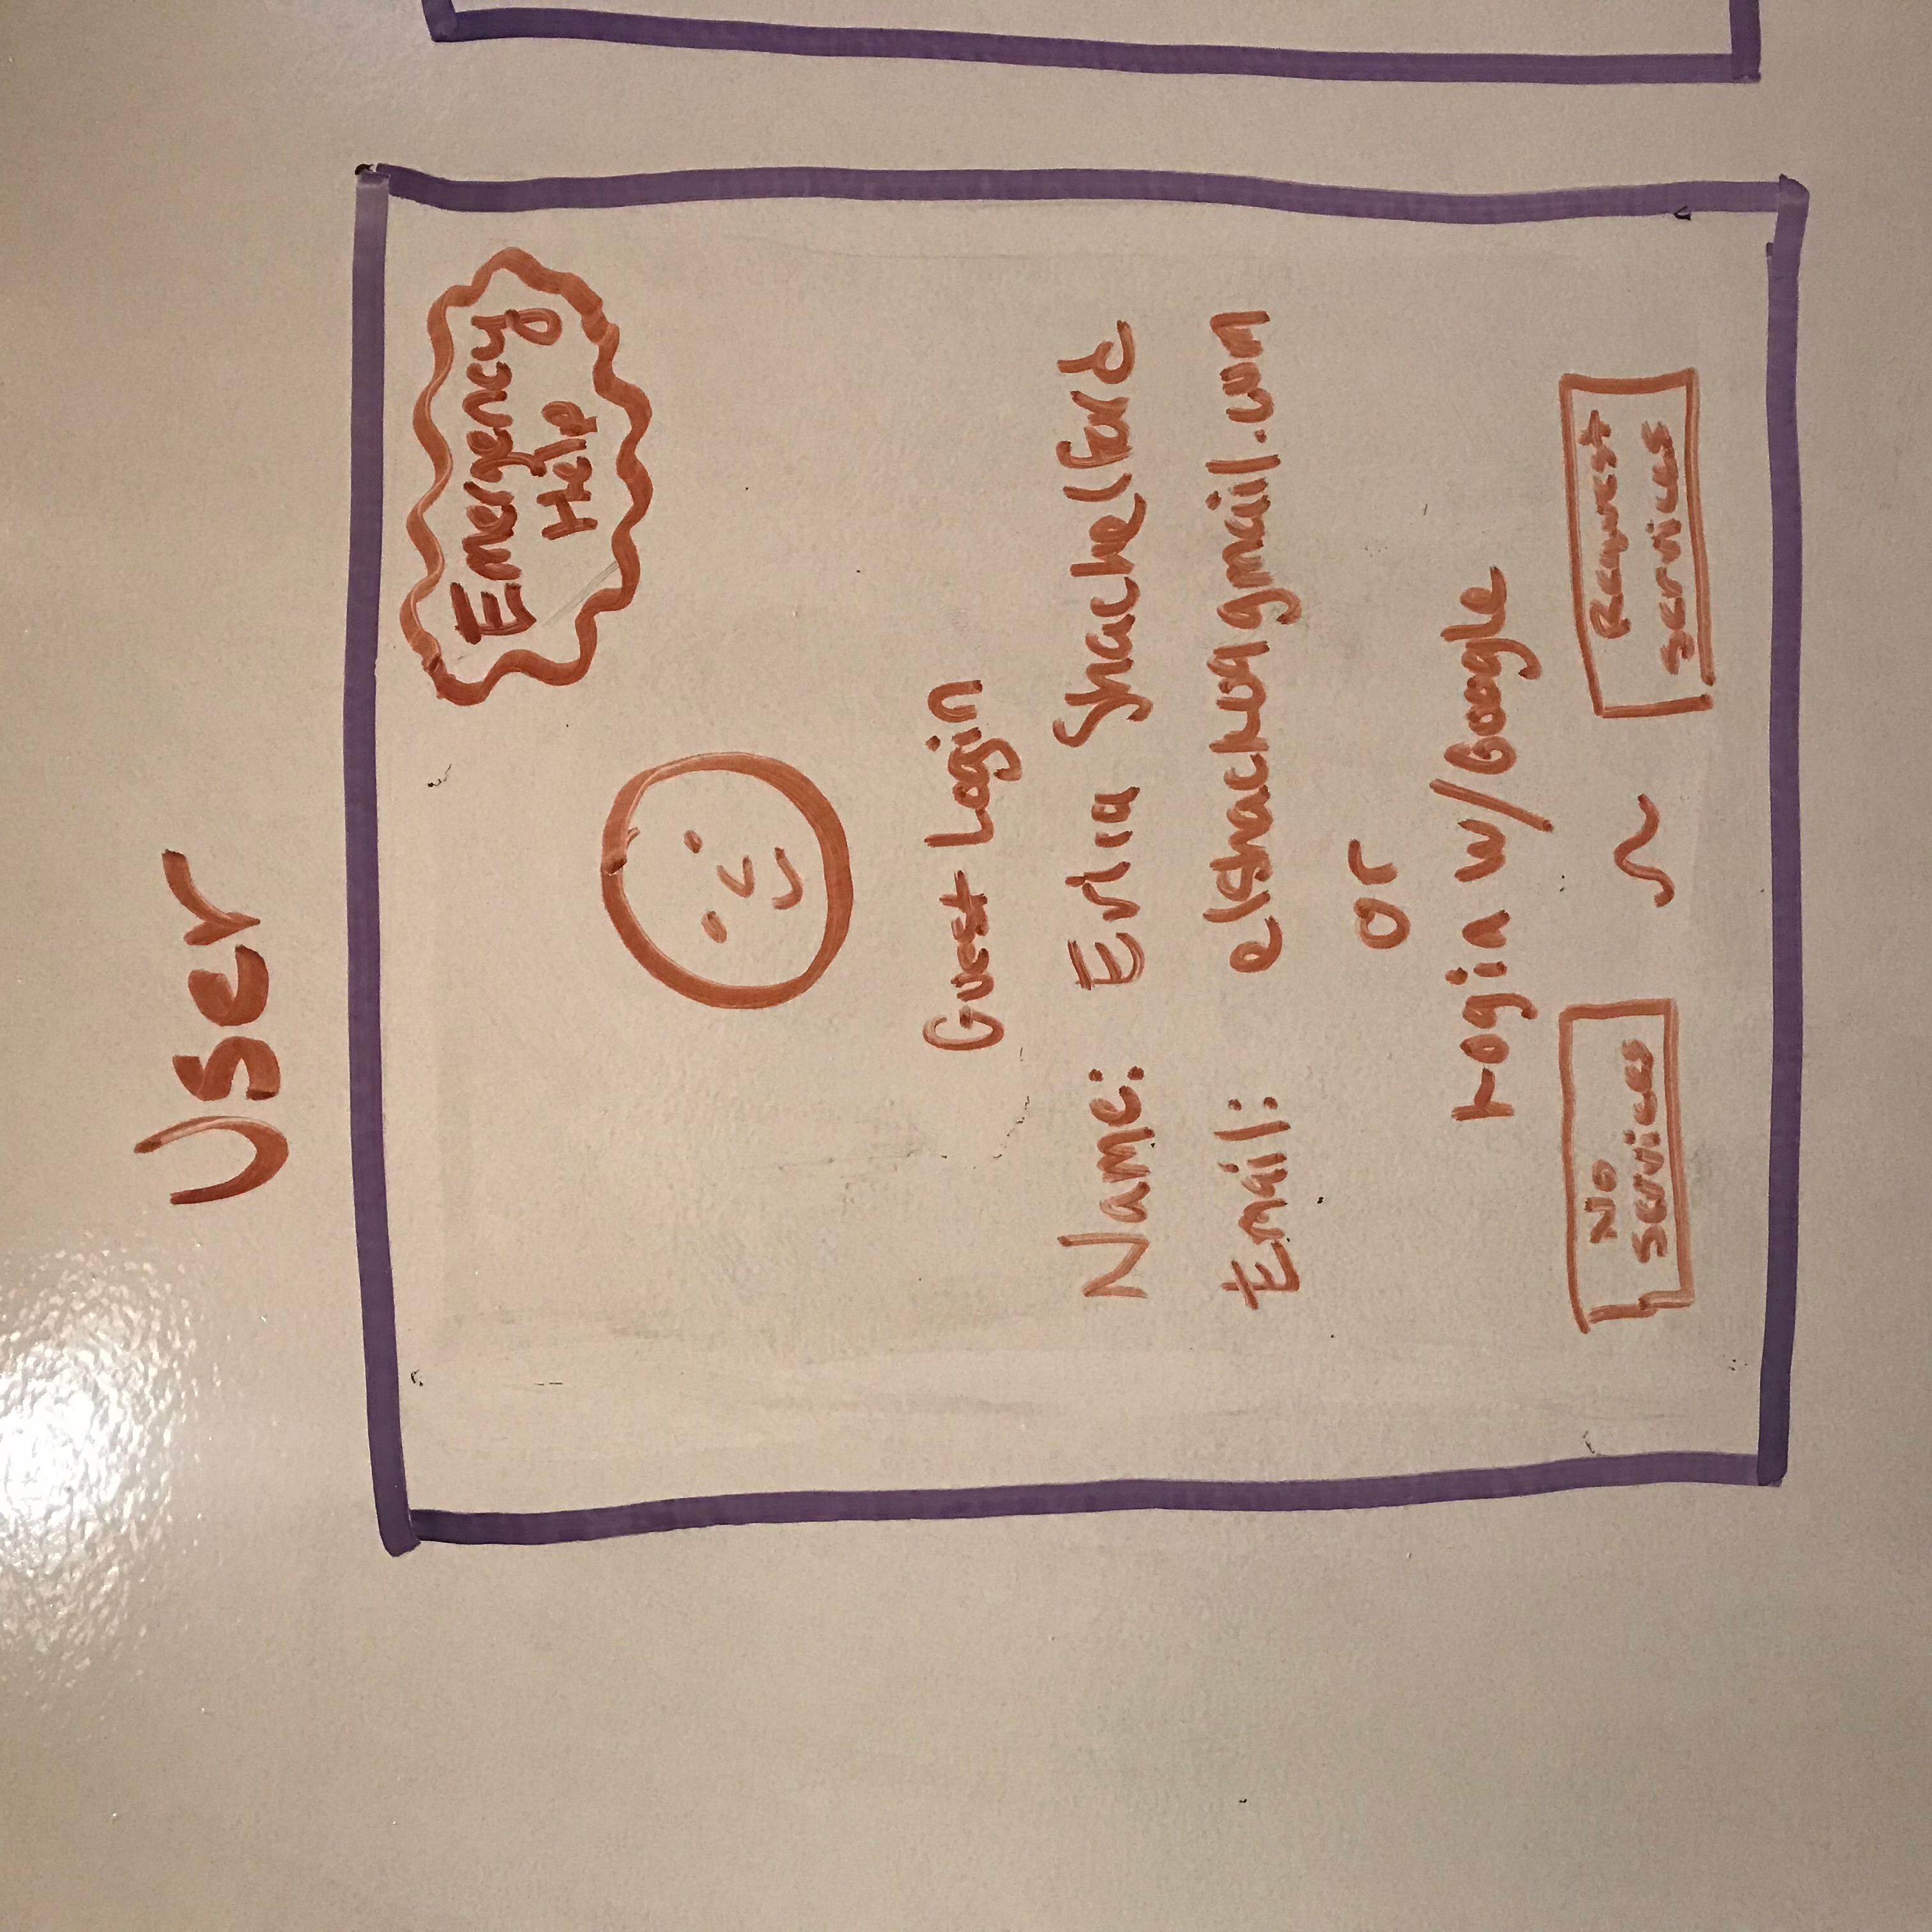 User
Emergency
Help
Guest Login
Name: Erica Shackelford
Email: elshack09gmail.com
or
Login w/Google
No
Services
Request
Services